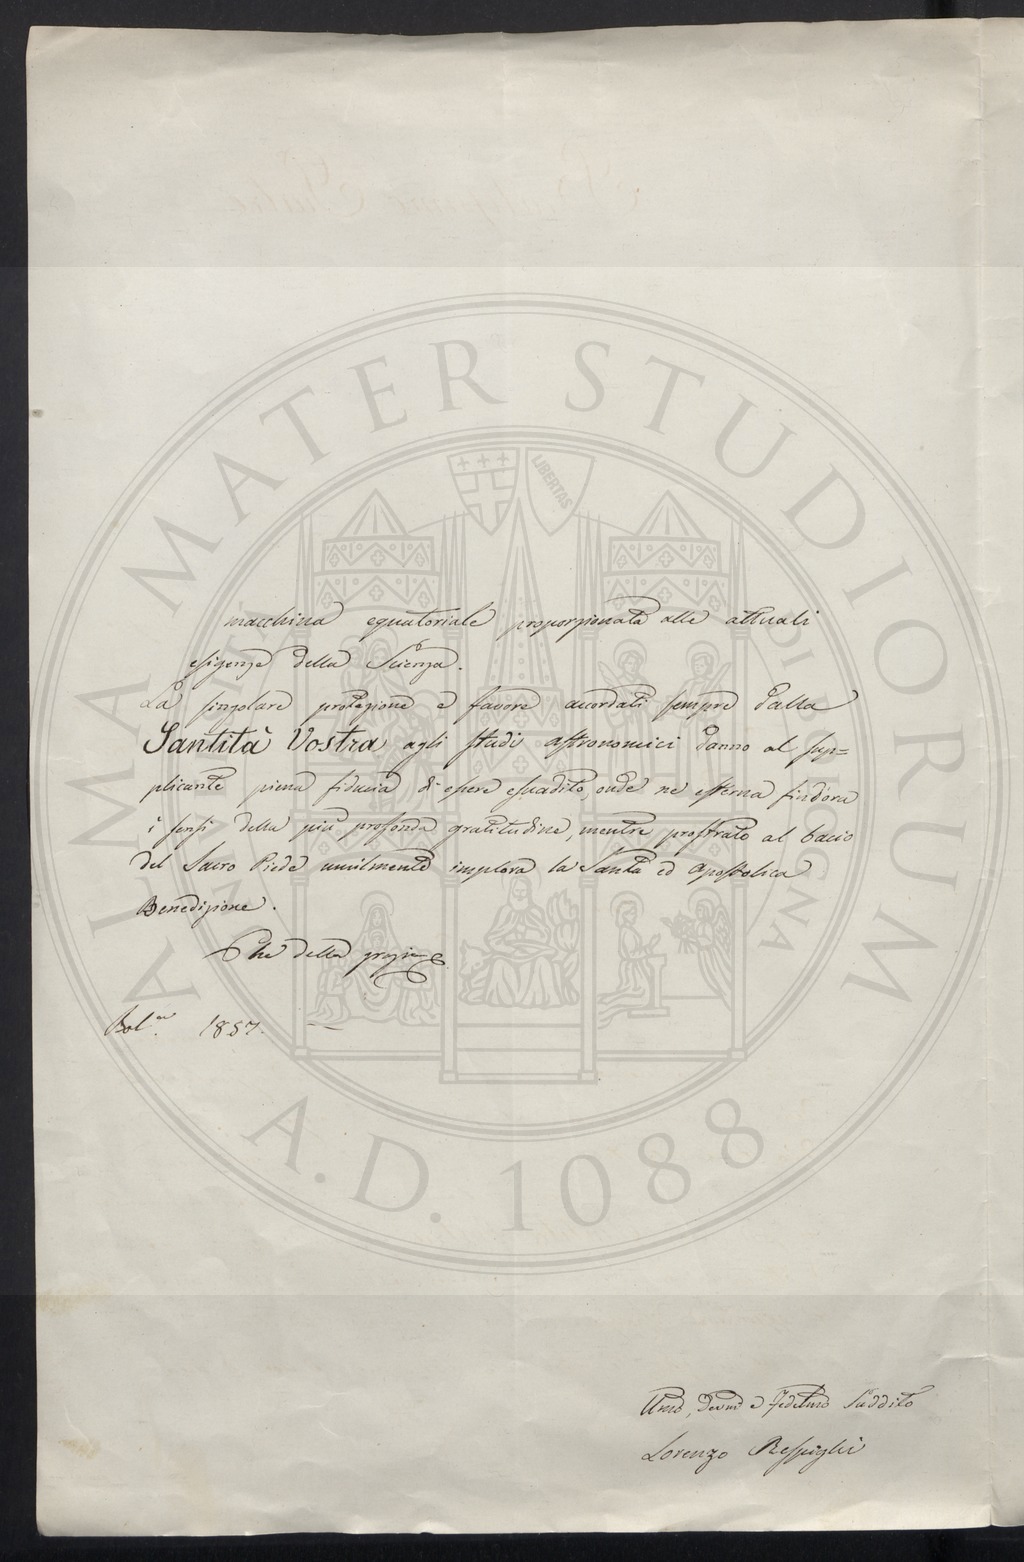 macchina equatoriale proporzionata alle attuali
esigenze della Scienza.
La singolare protezione e favore accordati sempre dalla
Santità Vostra agli studi astronomici danno al sup=
plicante piena fiducia di essere esaudito, onde ne esterna fin d'ora
i sensi della più profonda gratitudine, mentre prostrato al bacio
del Sacro Piede umilmente implora la Santa ed Apostolica
Benedizione.
Che della grazia
Bol.na 1857.
Umo, Devmo e Fedelmo Suddito
Lorenzo Respighi
ALMA MATER STUDIORUM
A.D. 1088
LIBERTAS
DI BOLOGNA